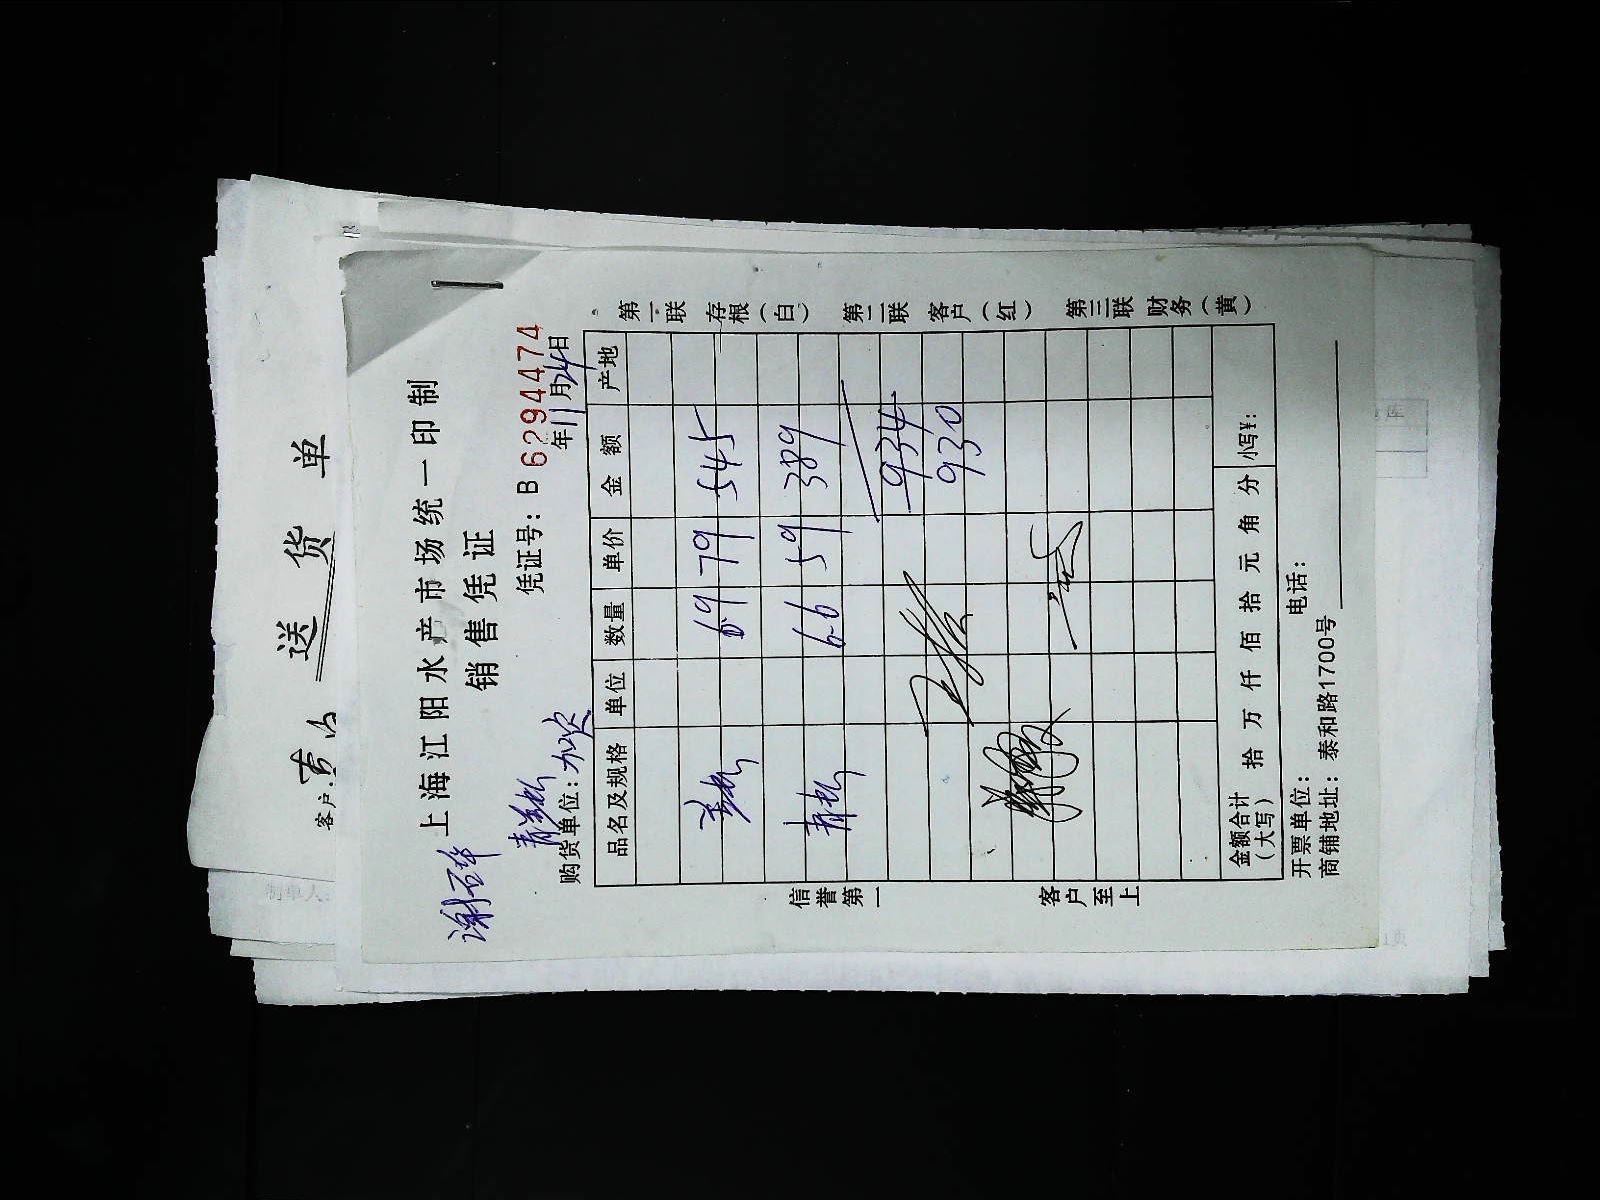 送货单
客户:
制单人:
上海江阳水产市场统一印制
销售凭证
凭证号: B 6294474
年11月24日
购货单位:
品名及规格 单位 数量 单价 金额 产地
6.9 79 545
6.6 59 389
934
930
金额合计(大写) 拾 万 仟 佰 拾 元 角 分 小写¥:
开票单位: 电话:
商铺地址: 泰和路1700号
信誉第一 客户至上
第一联 存根(白) 第二联 客户(红) 第三联 财务(黄)